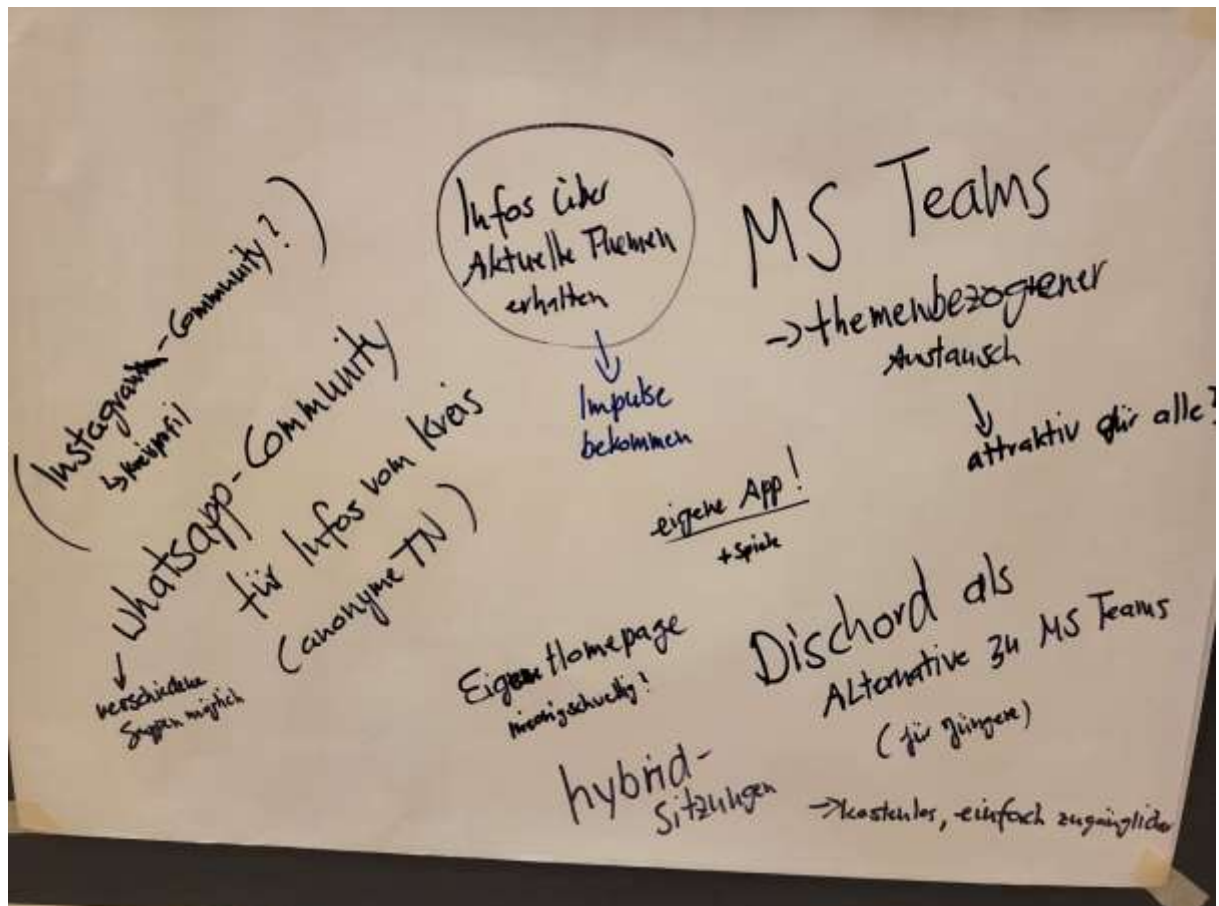 (Instagram-Community?)
↳ Kreisprofil
Whatsapp-Community
für Infos vom Kreis
(anonyme TN)
↓
verschiedene
Gruppen möglich
Infos über
Aktuelle Themen
erhalten
↓
Impulse
bekommen
MS Teams
→ themenbezogener
Austausch
↓
attraktiv für alle?
eigene App!
+ Spiele
Eigene Homepage
niedrigschwellig!
Dischord als
Alternative zu MS Teams
(für Jüngere)
→ kostenlos, einfach zugänglicher
hybrid-
Sitzungen